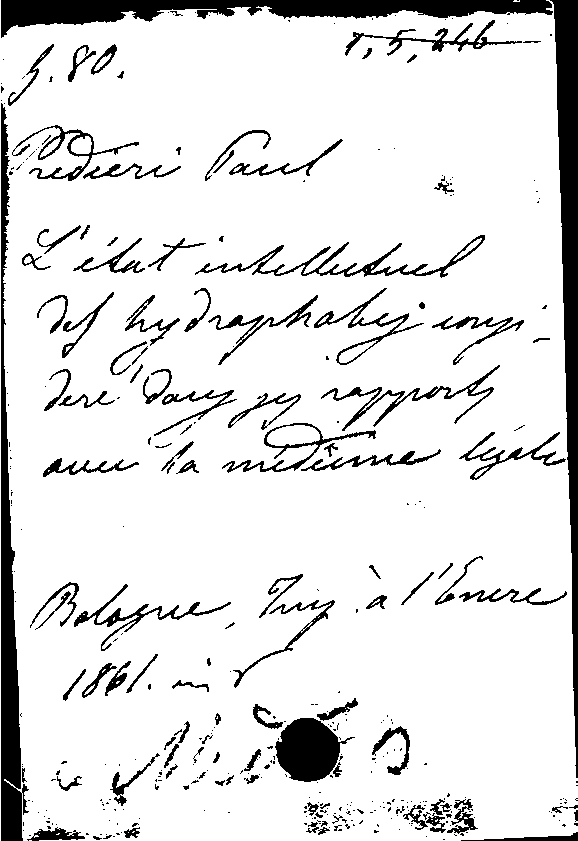 h. 80.
1, 5, 246
Predieri Paul
L'état intellectuel
des hydrophobes consi-
deré dans ses rapports
avec la médecine légale
Bologne, à l'Encre
1861. in